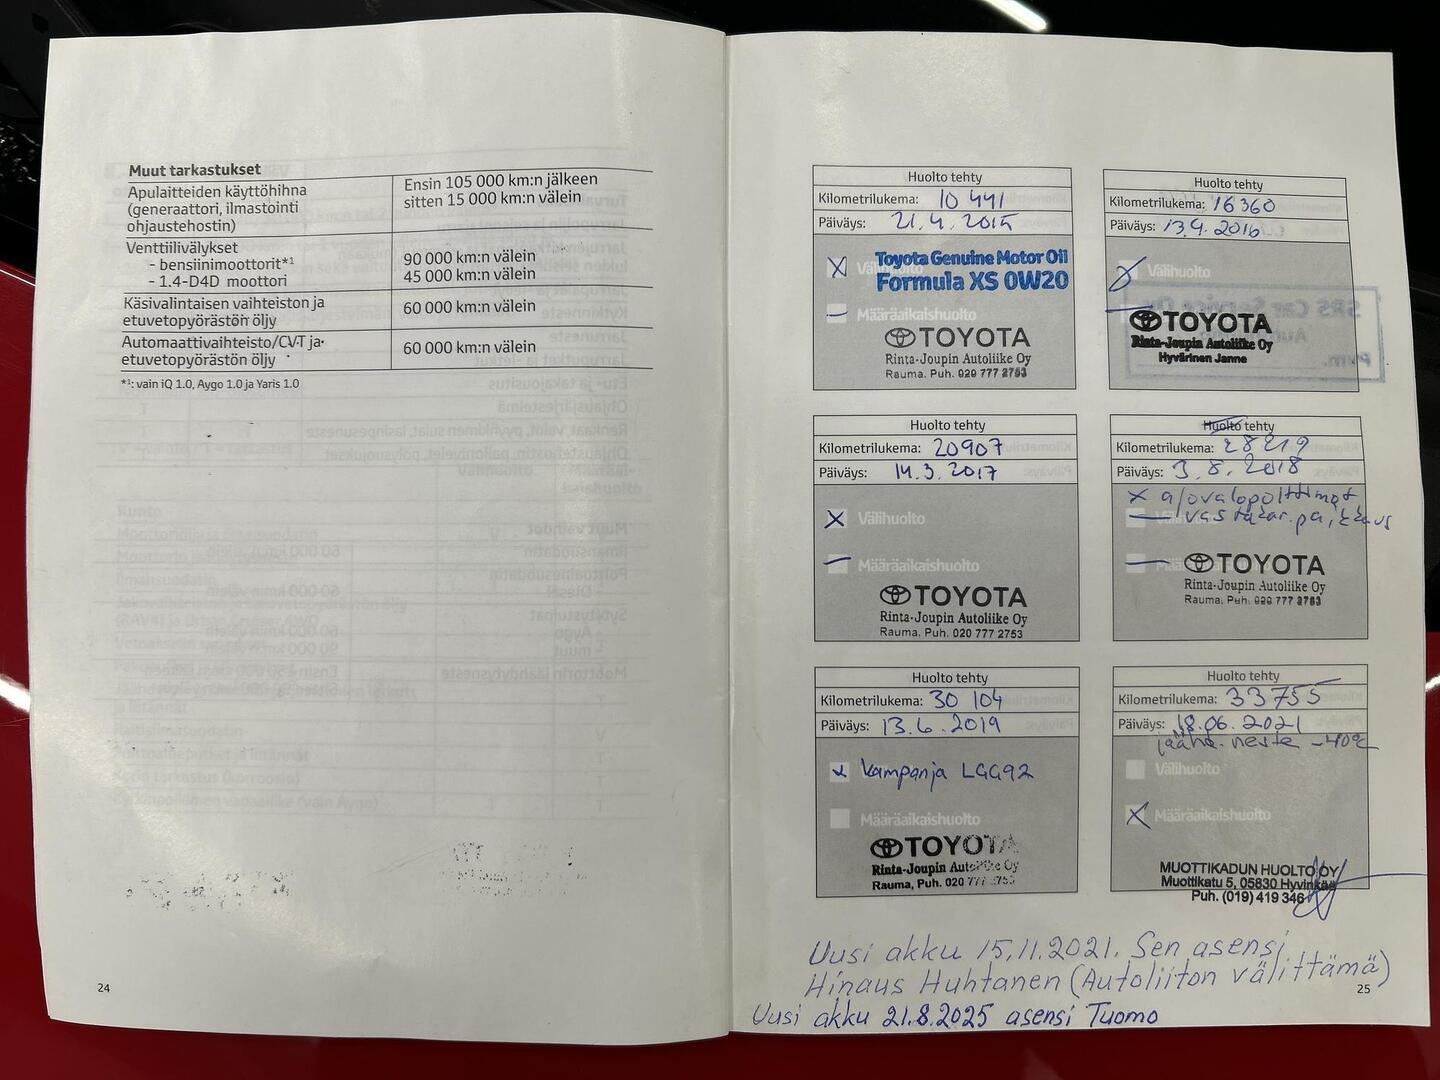 Muut tarkastukset
Apulaitteiden käyttöhihna
(generaattori, ilmastointi
ohjaustehostin)
Ensin 105 000 km:n jälkeen
sitten 15 000 km:n välein
Venttiilivälykset
- bensiinimoottorit*1
- 1.4-D4D moottori
90 000 km:n välein
45 000 km:n välein
Käsivalintaisen vaihteiston ja
etuvetopyörästön öljy
60 000 km:n välein
Automaattivaihteisto/CVT ja
etuvetopyörästön öljy
60 000 km:n välein
*1: vain iQ 1.0, Aygo 1.0 ja Yaris 1.0
24
Huolto tehty
Kilometrilukema: 10 441
Päiväys: 21.4.2015
X Välihuolto
Toyota Genuine Motor Oil
Formula XS 0W20
– Määräaikaishuolto
TOYOTA
Rinta-Joupin Autoliike Oy
Rauma. Puh. 020 777 2753
Huolto tehty
Kilometrilukema: 16360
Päiväys: 13.4.2016
Välihuolto
TOYOTA
Rinta-Joupin Autoliike Oy
Hyvärinen Janne
Huolto tehty
Kilometrilukema: 20907
Päiväys: 14.3.2017
X Välihuolto
– Määräaikaishuolto
TOYOTA
Rinta-Joupin Autoliike Oy
Rauma. Puh. 020 777 2753
Huolto tehty
Kilometrilukema: 28219
Päiväys: 3.8.2018
X ajovalopolttimot
TOYOTA
Rinta-Joupin Autoliike Oy
Rauma. Puh. 020 777 2753
Huolto tehty
Kilometrilukema: 30 104
Päiväys: 13.6.2019
x kampanja LGG92
Määräaikaishuolto
TOYOTA
Rinta-Joupin Autoliike Oy
Rauma, Puh. 020 777 2753
Huolto tehty
Kilometrilukema: 33755
Päiväys: 18.06.2021
jäähd. neste -40°C
Välihuolto
X Määräaikaishuolto
MUOTTIKADUN HUOLTO OY
Muottikatu 5, 05830 Hyvinkää
Puh. (019) 419 346
Uusi akku 15.11.2021. Sen asensi
Hinaus Huhtanen (Autoliiton välittämä)
25
Uusi akku 21.8.2025 asensi Tuomo